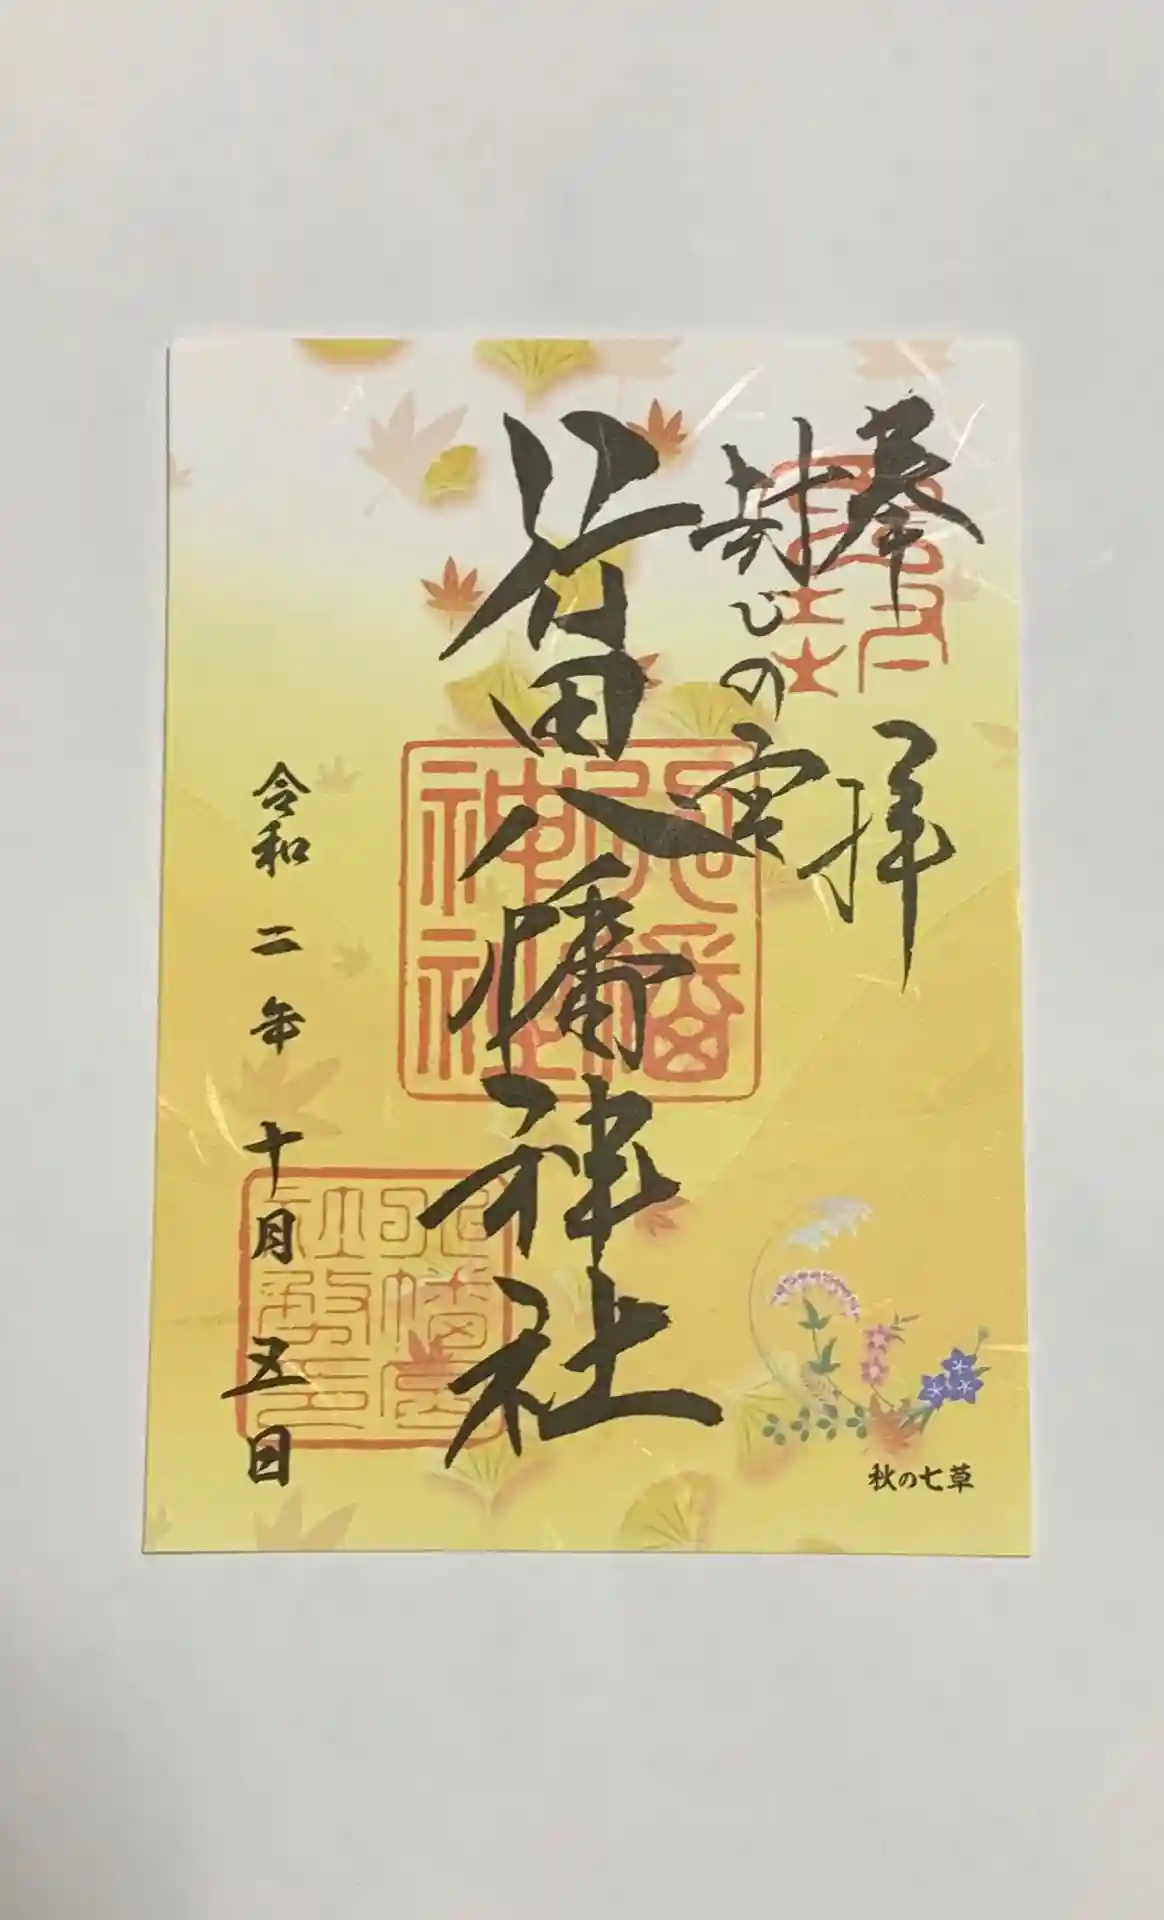 奉拝
封じの宮
行田八幡神社
八幡神社
令和二年十月五日
秋の七草